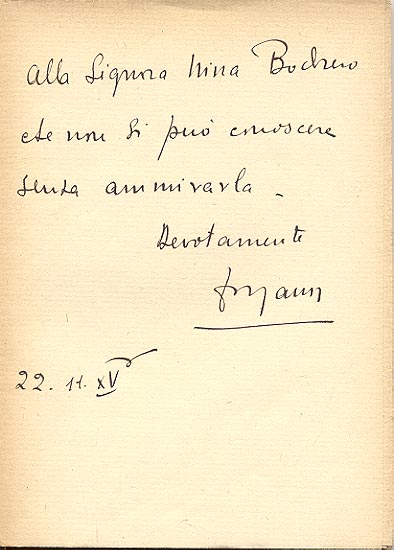 Alla Signora Nina Bodrero
che non si può conoscere
senza ammirarla _
Devotamente
22. 11. XV